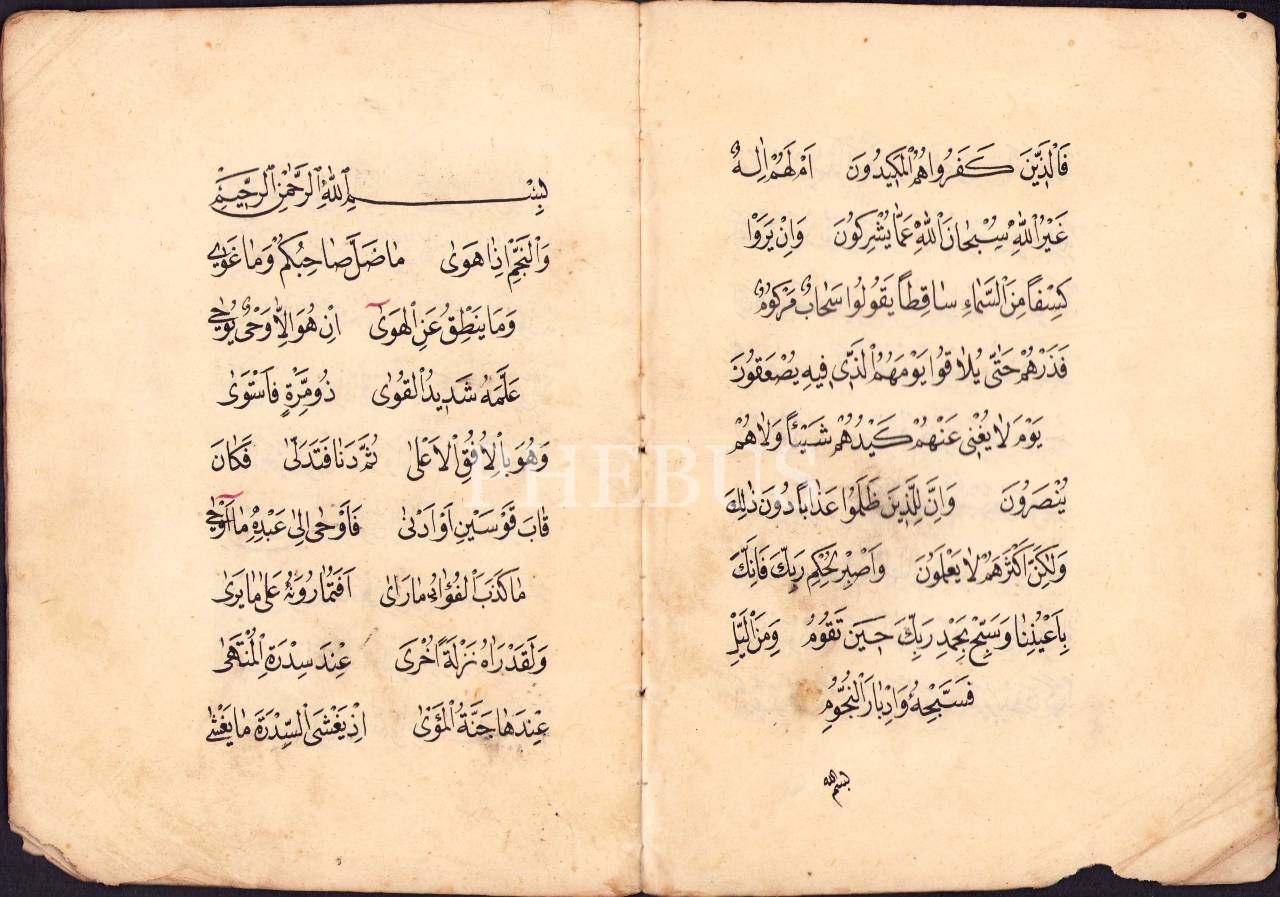 فَالَّذِينَ كَفَرُوا هُمُ الْمَكِيدُونَ اَمْ لَهُمْ اِلٰهٌ
غَيْرُ اللّٰهِ سُبْحَانَ اللّٰهِ عَمَّا يُشْرِكُونَ وَاِنْ يَرَوْا
كِسْفاً مِنَ السَّمَاءِ سَاقِطاً يَقُولُوا سَحَابٌ مَرْكُومٌ
فَذَرْهُمْ حَتّٰى يُلَاقُوا يَوْمَهُمُ الَّذِى فِيهِ يُصْعَقُونَ
يَوْمَ لَا يُغْنِى عَنْهُمْ كَيْدُهُمْ شَيْئاً وَلَا هُمْ
يُنْصَرُونَ وَاِنَّ لِلَّذِينَ ظَلَمُوا عَذَاباً دُونَ ذٰلِكَ
وَلٰكِنَّ اَكْثَرَهُمْ لَا يَعْلَمُونَ وَاصْبِرْ لِحُكْمِ رَبِّكَ فَاِنَّكَ
بِاَعْيُنِنَا وَسَبِّحْ بِحَمْدِ رَبِّكَ حِينَ تَقُومُ وَمِنَ الَّيْلِ
فَسَبِّحْهُ وَاِدْبَارَ النُّجُومِ
بسم الله
بِسْمِ اللّٰهِ الرَّحْمٰنِ الرَّحِيمِ
وَالنَّجْمِ اِذَا هَوٰى مَا ضَلَّ صَاحِبُكُمْ وَمَا غَوٰى
وَمَا يَنْطِقُ عَنِ الْهَوٰى اِنْ هُوَ اِلَّا وَحْىٌ يُوحٰى
عَلَّمَهُ شَدِيدُ الْقُوٰى ذُو مِرَّةٍ فَاسْتَوٰى
وَهُوَ بِالْاُفُقِ الْاَعْلٰى ثُمَّ دَنَا فَتَدَلّٰى فَكَانَ
قَابَ قَوْسَيْنِ اَوْ اَدْنٰى فَاَوْحٰى اِلٰى عَبْدِهِ مَا اَوْحٰى
مَا كَذَبَ الْفُؤَادُ مَا رَاٰى اَفَتُمَارُونَهُ عَلٰى مَا يَرٰى
وَلَقَدْ رَاٰهُ نَزْلَةً اُخْرٰى عِنْدَ سِدْرَةِ الْمُنْتَهٰى
عِنْدَهَا جَنَّةُ الْمَأْوٰى اِذْ يَغْشَى السِّدْرَةَ مَا يَغْشٰى
PHEBUS